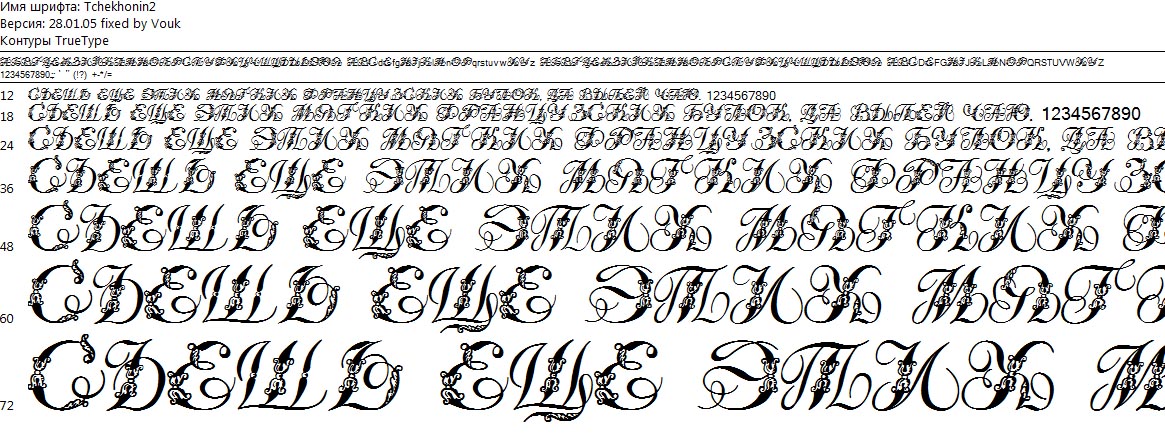 Имя шрифта: Tchekhonin2
Версия: 28.01.05 fixed by Vouk
Контуры TrueType
1234567890.:,; ' " (!?) +-*/=
12 СЪЕШЬ ЕЩЕ ЭТИХ МЯГКИХ ФРАНЦУЗСКИХ БУЛОК, ДА ВЫПЕЙ ЧАЮ. 1234567890
18 СЪЕШЬ ЕЩЕ ЭТИХ МЯГКИХ ФРАНЦУЗСКИХ БУЛОК, ДА ВЫПЕЙ ЧАЮ. 1234567890
24 СЪЕШЬ ЕЩЕ ЭТИХ МЯГКИХ ФРАНЦУЗСКИХ БУЛОК, ДА ВЫ
36 СЪЕШЬ ЕЩЕ ЭТИХ МЯГКИХ ФРАНЦУЗ
48 СЪЕШЬ ЕЩЕ ЭТИХ МЯГКИХ Ф
60 СЪЕШЬ ЕЩЕ ЭТИХ МЯГ
72 СЪЕШЬ ЕЩЕ ЭТИХ М